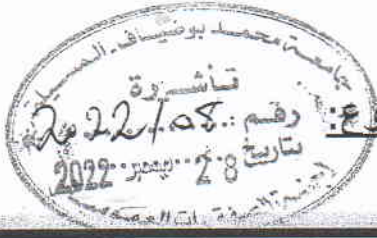 جامعة محمد بوضياف المسيلة
تأشيرة
رقم: 2022/08
بتاريخ 28 ديسمبر 2022